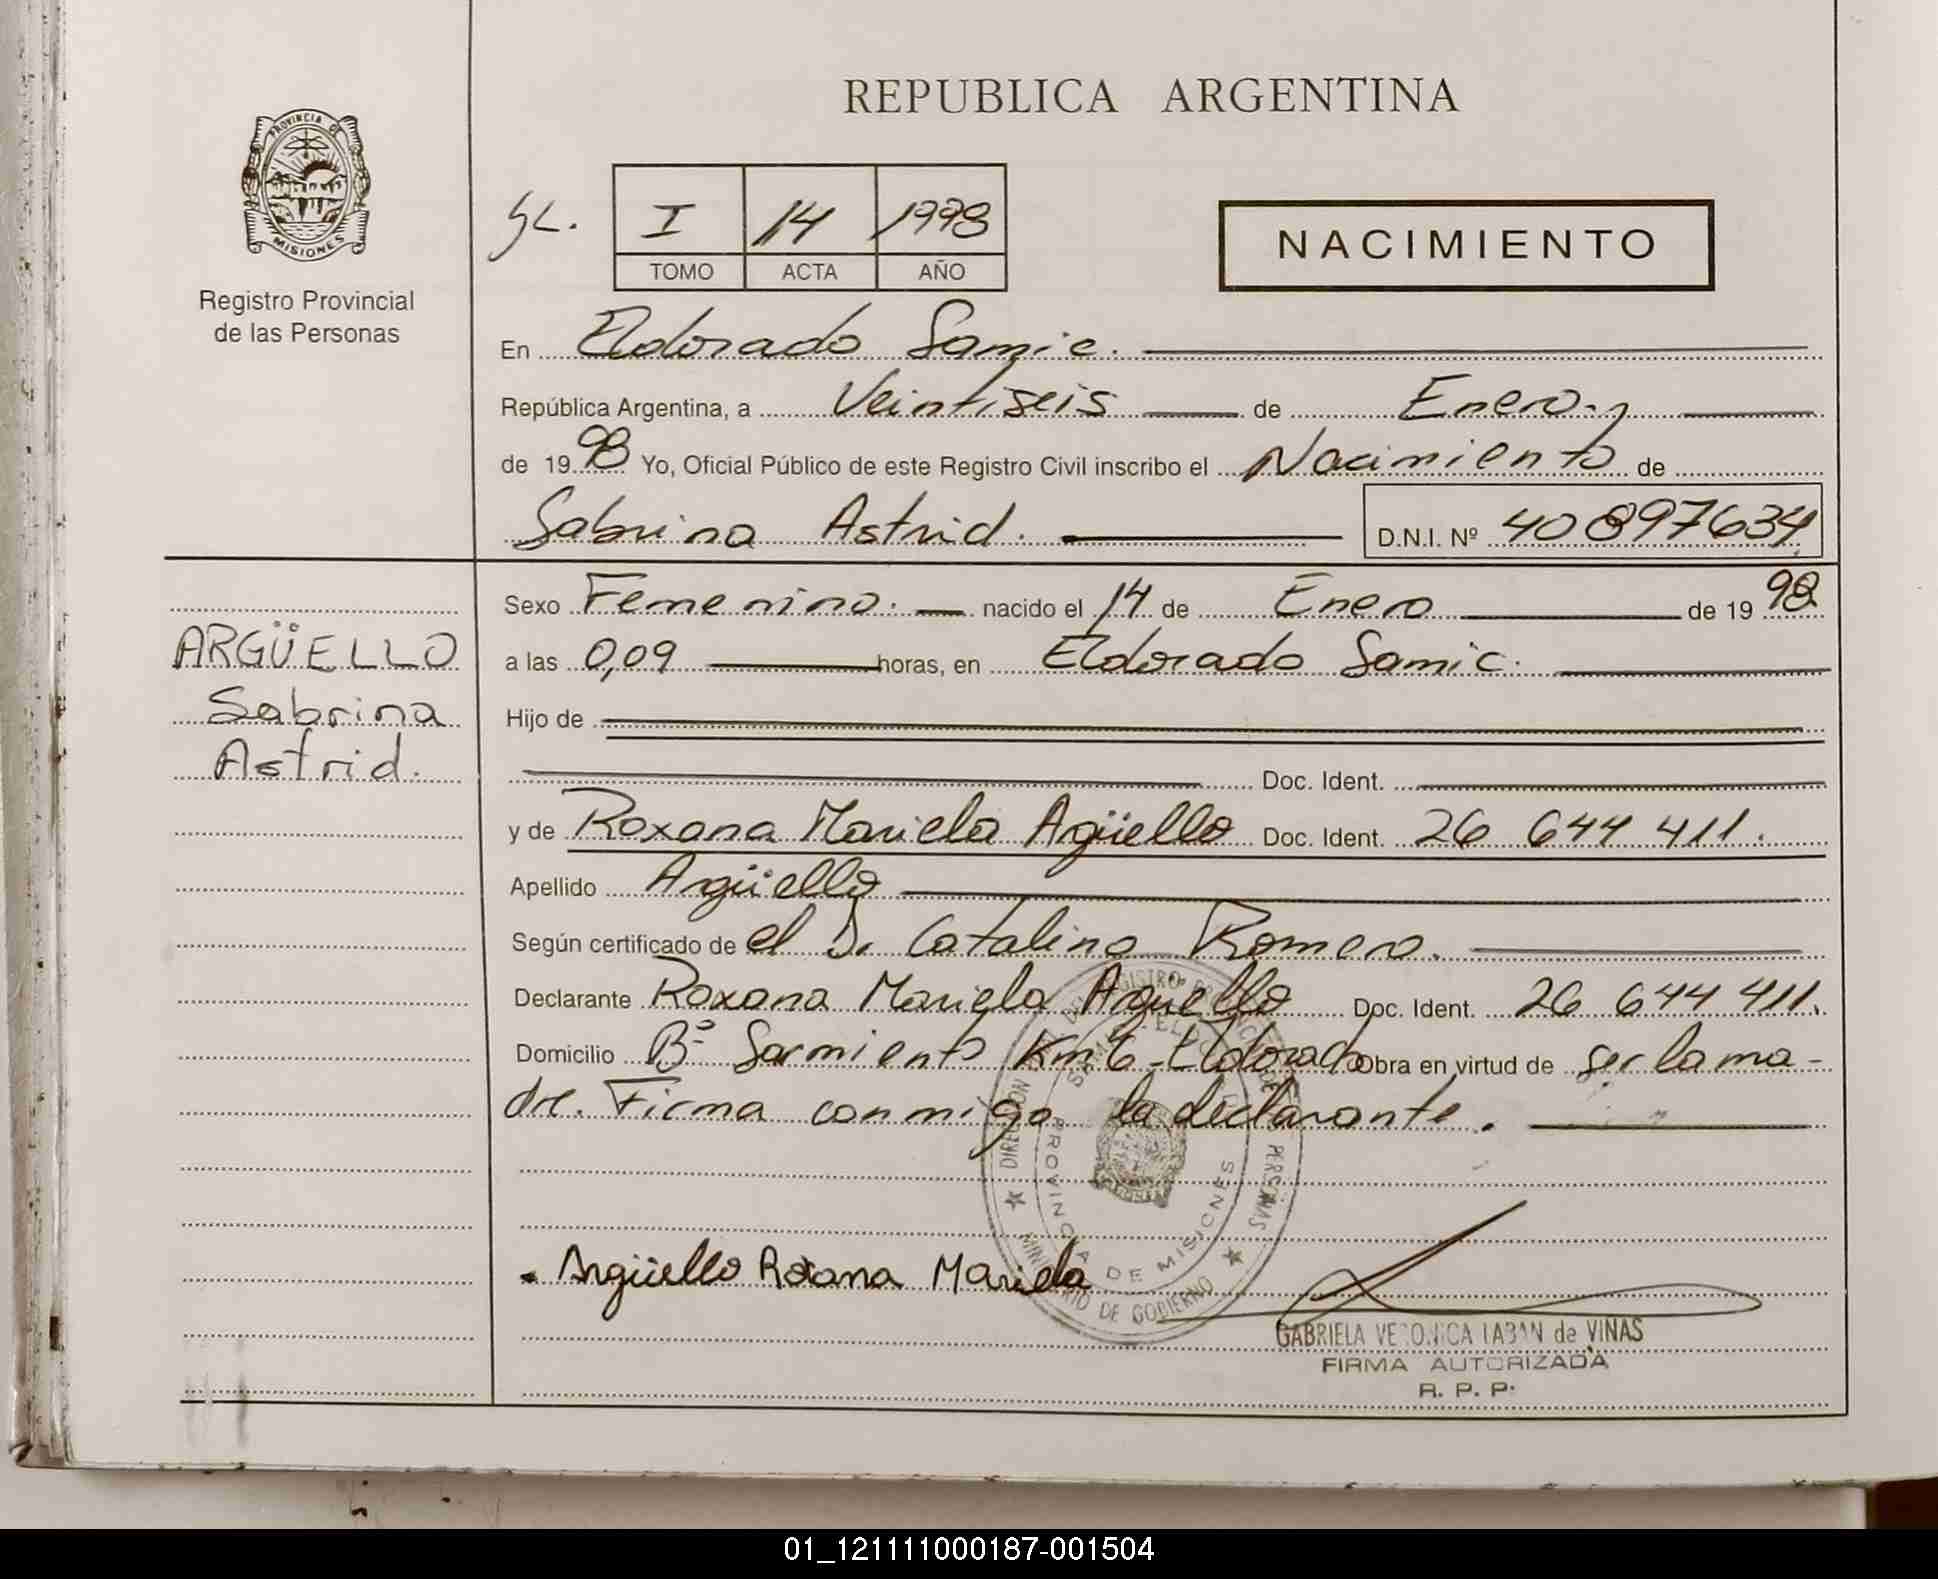 REPUBLICA ARGENTINA
PROVINCIA DE
MISIONES
Registro Provincial
de las Personas
I 14 1998
TOMO ACTA AÑO
NACIMIENTO
En Eldorado Samic.
República Argentina, a Veintiseis de Enero
de 19 98 Yo, Oficial Público de este Registro Civil inscribo el Nacimiento de
Sabrina Astrid. D.N.I. Nº 40897634
Sexo Femenino. nacido el 14 de Enero de 19 98
ARGÜELLO
Sabrina
Astrid.
a las 0,09 horas, en Eldorado Samic.
Hijo de
Doc. Ident.
y de Roxana Mariela Agüello Doc. Ident. 26 644 411.
Apellido Argüello
Según certificado de el Dr Catalino Romero.
Declarante Roxana Mariela Arguello Doc. Ident. 26 644 411.
Domicilio Bº Sarmiento Km 6 - Eldorado Obra en virtud de ser la ma-
dre. Firma conmigo la declarante.
PROVINCIA DE MISIONES
MINISTERIO DE GOBIERNO
Argüello Roxana Mariela
GABRIELA VERONICA LABAN de VIÑAS
FIRMA AUTORIZADA
R. P. P.
01_121111000187-001504